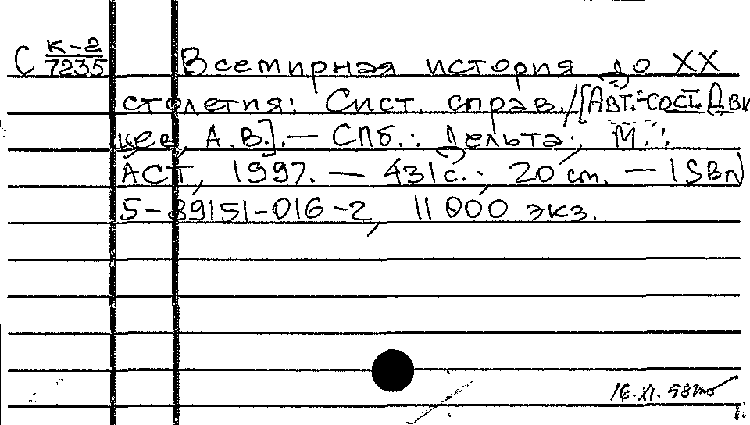 С К-2 Всемирная история до XX
7235
столетия: Сист. справ./[Авт.-сост. Дви
цев, А.В.]. — СПб.: Дельта; М.:
АСТ, 1997. — 431с.; 20 cm. — ISBN
5-89151-016-2, 11 000 экз.